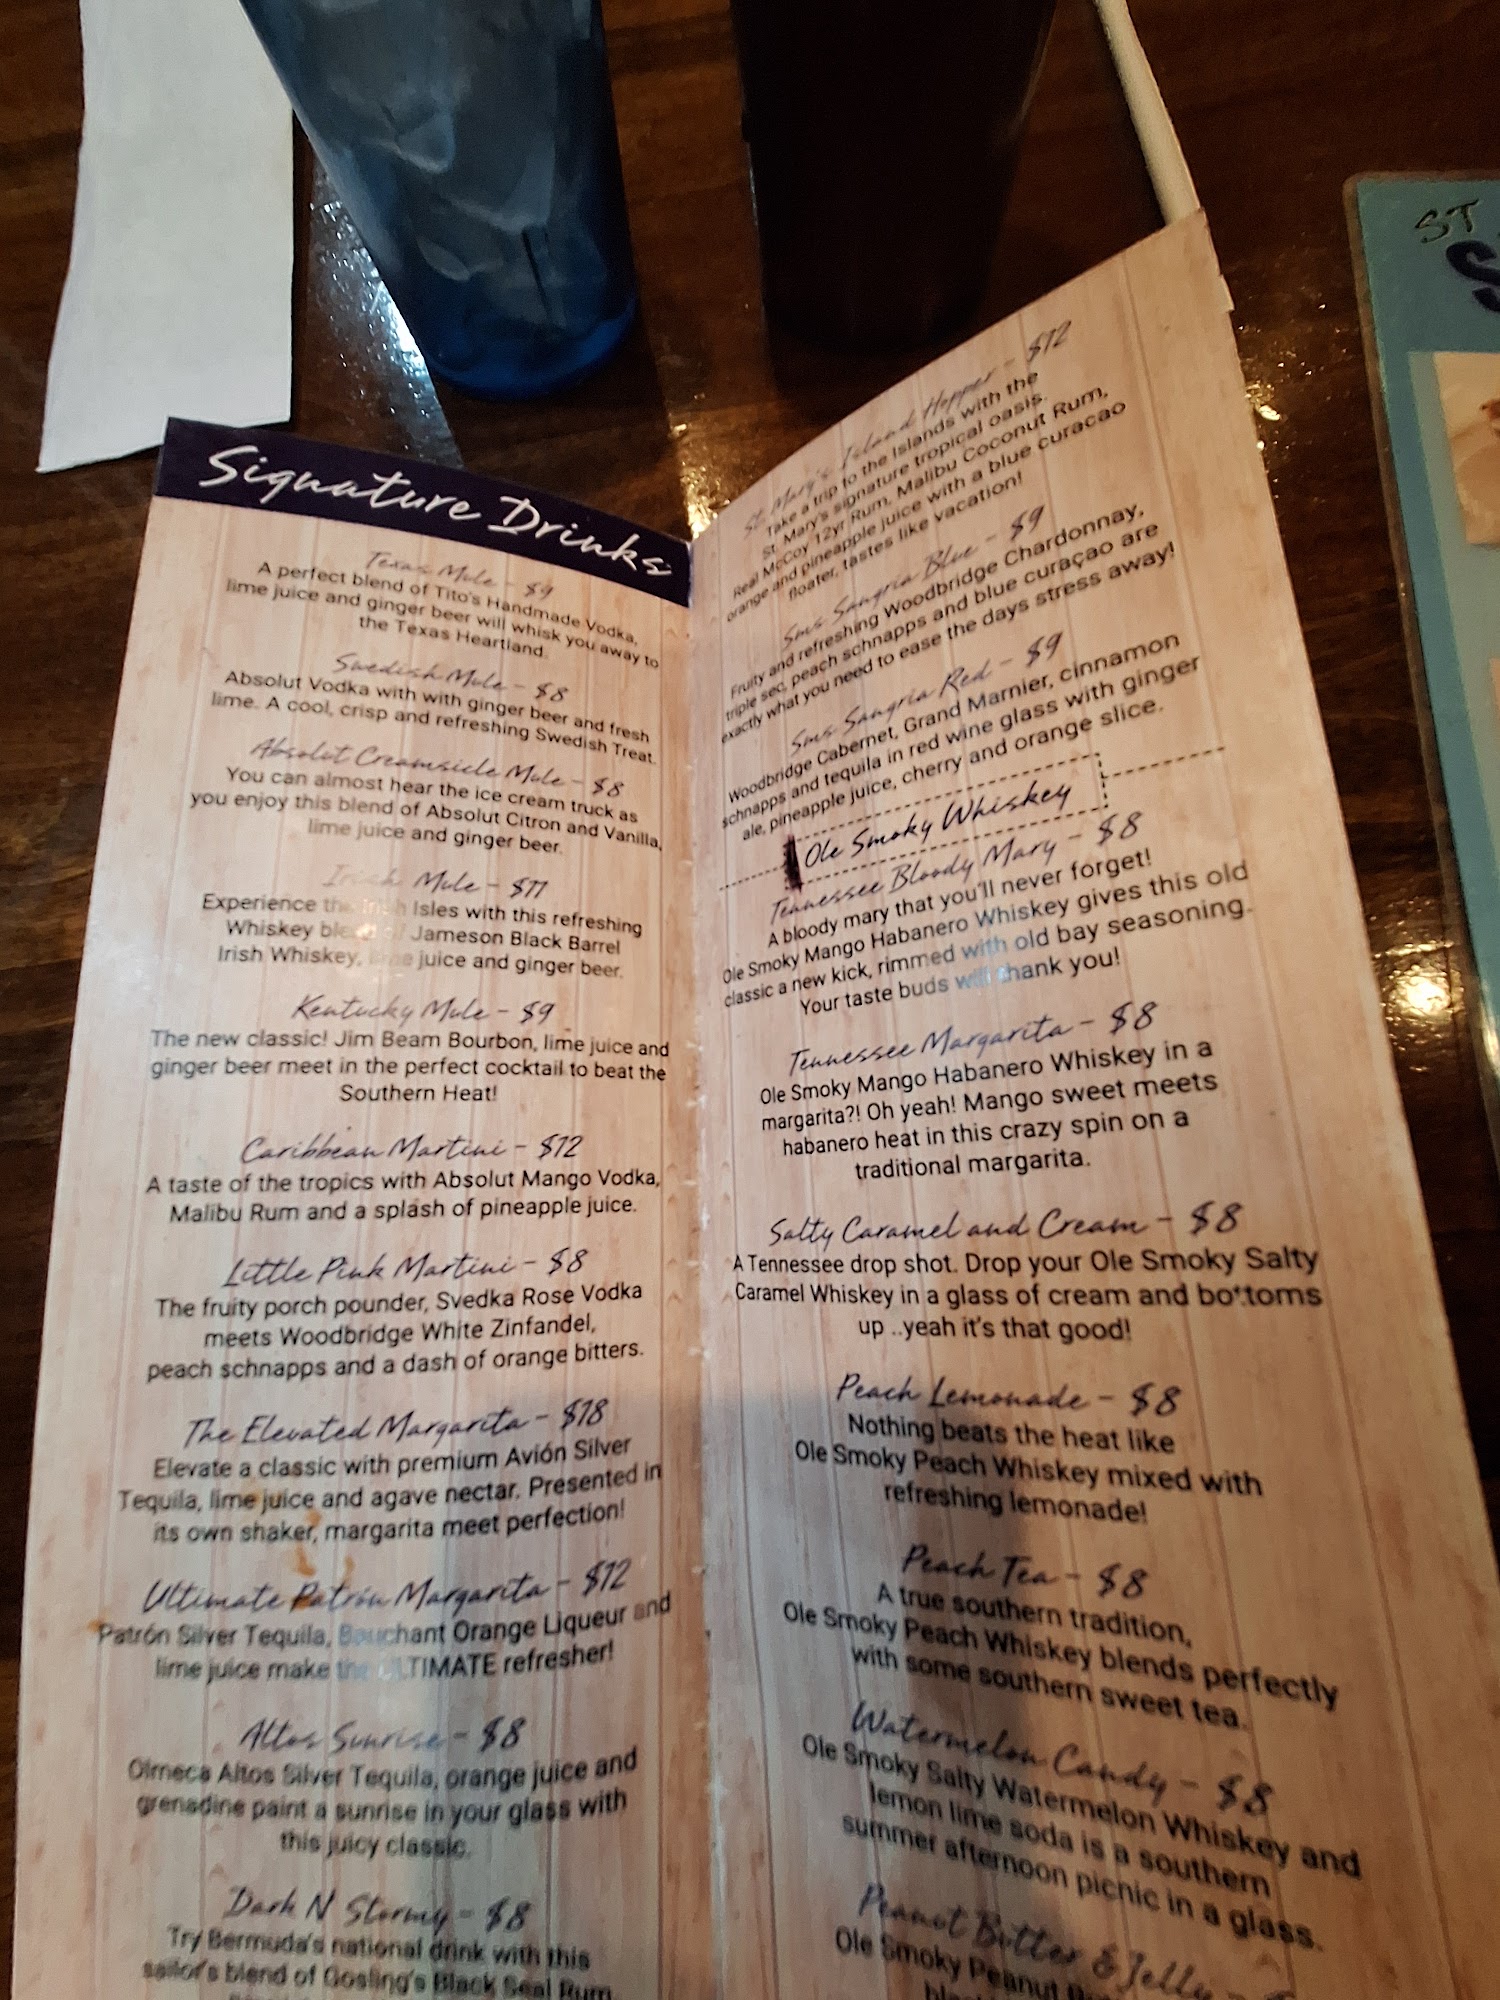 ST
Signature Drinks
Texas Mule - $9
A perfect blend of Tito's Handmade Vodka,
lime juice and ginger beer will whisk you away to
the Texas Heartland.
Swedish Mule - $8
Absolut Vodka with with ginger beer and fresh
lime. A cool, crisp and refreshing Swedish Treat.
Absolut Creamsicle Mule - $8
You can almost hear the ice cream truck as
you enjoy this blend of Absolut Citron and Vanilla,
lime juice and ginger beer.
Irish Mule - $11
Experience the Irish Isles with this refreshing
Whiskey blend of Jameson Black Barrel
Irish Whiskey, lime juice and ginger beer.
Kentucky Mule - $9
The new classic! Jim Beam Bourbon, lime juice and
ginger beer meet in the perfect cocktail to beat the
Southern Heat!
Caribbean Martini - $12
A taste of the tropics with Absolut Mango Vodka,
Malibu Rum and a splash of pineapple juice.
Little Pink Martini - $8
The fruity porch pounder, Svedka Rose Vodka
meets Woodbridge White Zinfandel,
peach schnapps and a dash of orange bitters.
The Elevated Margarita - $18
Elevate a classic with premium Avión Silver
Tequila, lime juice and agave nectar. Presented in
its own shaker, margarita meet perfection!
Ultimate Patrón Margarita - $12
Patrón Silver Tequila, Bauchant Orange Liqueur and
lime juice make the ULTIMATE refresher!
Altos Sunrise - $8
Olmeca Altos Silver Tequila, orange juice and
grenadine paint a sunrise in your glass with
this juicy classic.
Dark N Stormy - $8
Try Bermuda's national drink with this
sailor's blend of Gosling's Black Seal Rum
St. Mary's Island Hopper - $12
Take a trip to the Islands with the
St. Mary's signature tropical oasis.
Real McCoy 12yr Rum, Malibu Coconut Rum,
orange and pineapple juice with a blue curacao
floater, tastes like vacation!
Sms Sangria Blue - $9
Fruity and refreshing Woodbridge Chardonnay,
triple sec, peach schnapps and blue curaçao are
exactly what you need to ease the days stress away!
Sms Sangria Red - $9
Woodbridge Cabernet, Grand Marnier, cinnamon
schnapps and tequila in red wine glass with ginger
ale, pineapple juice, cherry and orange slice.
Ole Smoky Whiskey
Tennessee Bloody Mary - $8
A bloody mary that you'll never forget!
Ole Smoky Mango Habanero Whiskey gives this old
classic a new kick, rimmed with old bay seasoning.
Your taste buds will thank you!
Tennessee Margarita - $8
Ole Smoky Mango Habanero Whiskey in a
margarita?! Oh yeah! Mango sweet meets
habanero heat in this crazy spin on a
traditional margarita.
Salty Caramel and Cream - $8
A Tennessee drop shot. Drop your Ole Smoky Salty
Caramel Whiskey in a glass of cream and bottoms
up ..yeah it's that good!
Peach Lemonade - $8
Nothing beats the heat like
Ole Smoky Peach Whiskey mixed with
refreshing lemonade!
Peach Tea - $8
A true southern tradition,
Ole Smoky Peach Whiskey blends perfectly
with some southern sweet tea.
Watermelon Candy - $8
Ole Smoky Salty Watermelon Whiskey and
lemon lime soda is a southern
summer afternoon picnic in a glass.
Peanut Butter & Jelly -
Ole Smoky Peanut